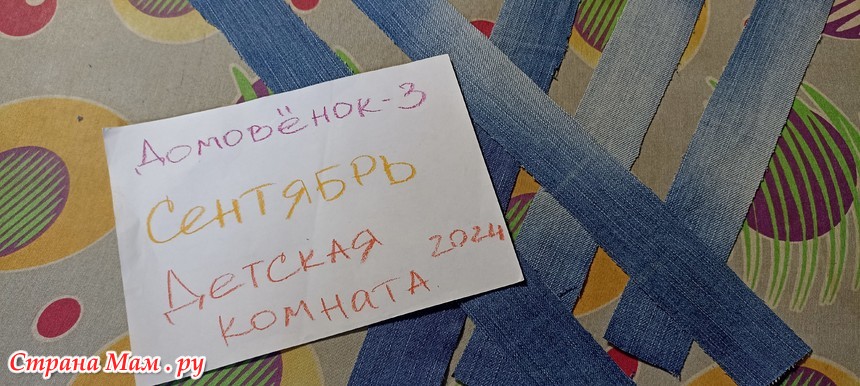 Домовёнок-3
Сентябрь
Детская 2024
комната.
Страна Мам.ру